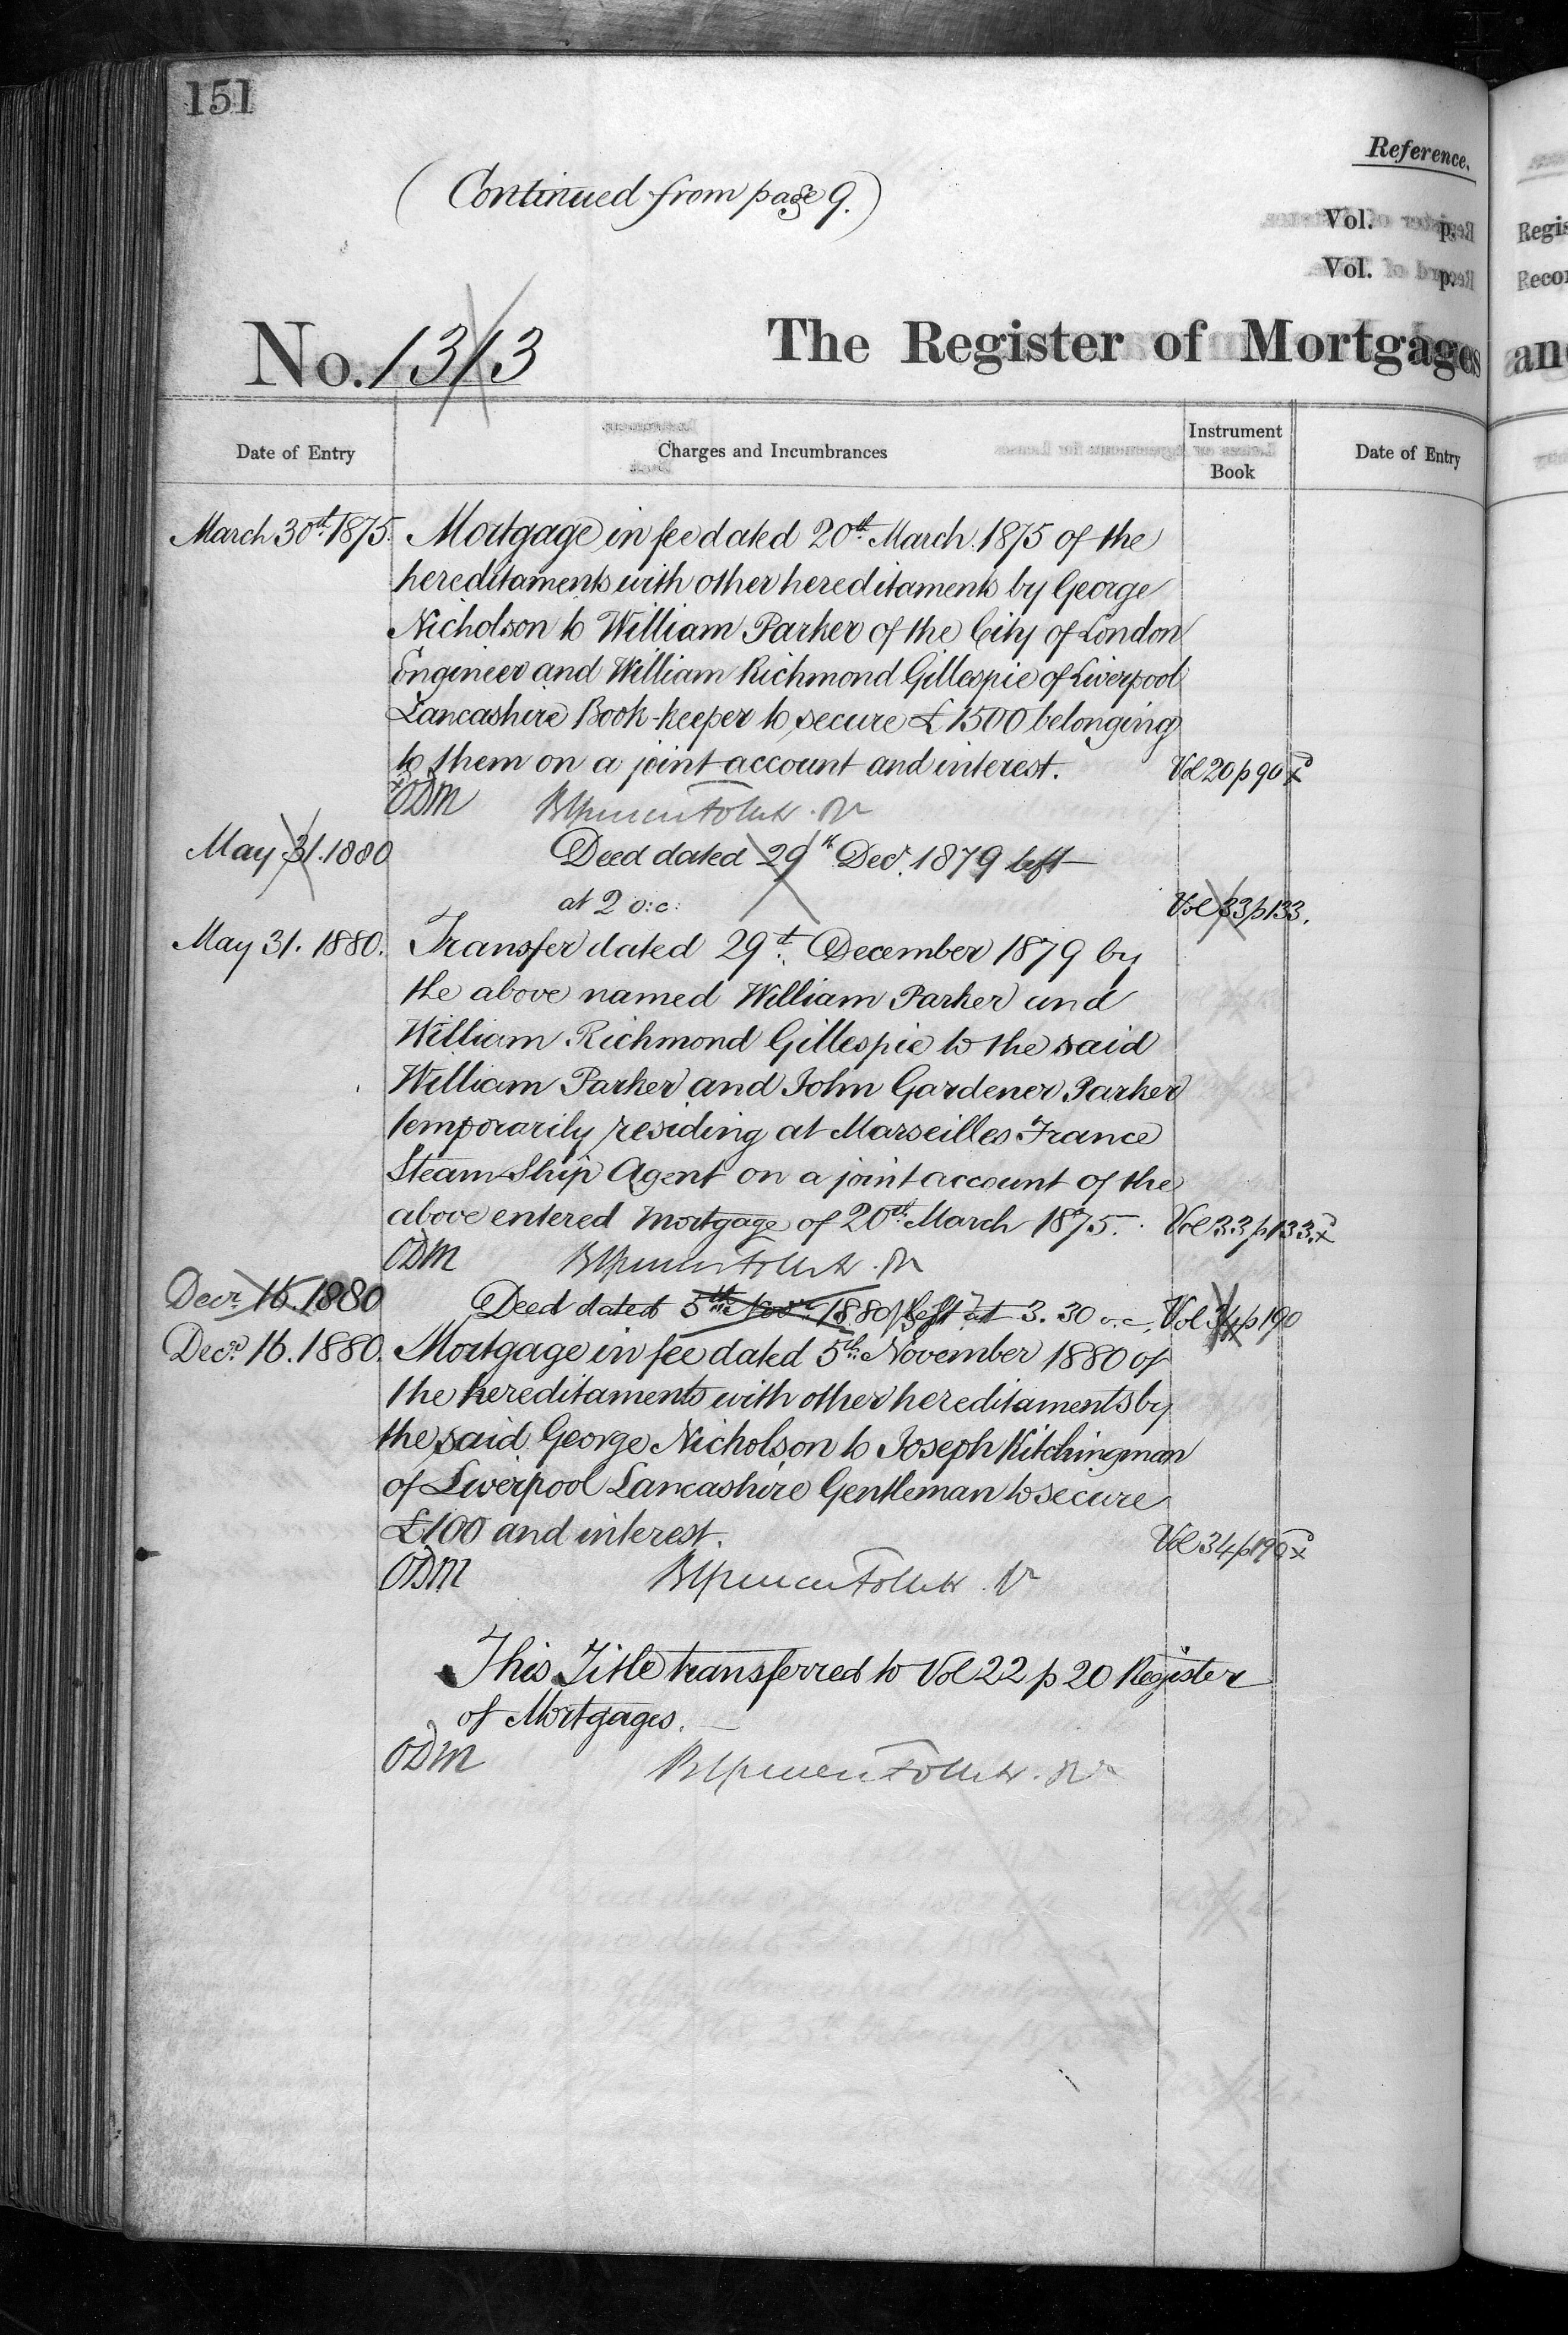 151
Reference.
(Continued from page 9.)
Vol. p.
Vol. p.
No. 1313 The Register of Mortgages
Date of Entry Charges and Incumbrances Instrument Book Date of Entry
March 30th 1875. Mortgage in fee dated 20th March 1875 of the
hereditaments with other hereditaments by George
Nicholson to William Parker of the City of London
Engineer and William Richmond Gillespie of Liverpool
Lancashire Book-keeper to secure £1500 belonging
to them on a joint account and interest. Vol 20 p 90
ODM
May 31. 1880 Deed dated 29th Decr. 1879 left
at 2 o:c: Vol 33 p 133.
May 31. 1880. Transfer dated 29th December 1879 by
the above named William Parker and
William Richmond Gillespie to the said
William Parker and John Gardener Parker
temporarily residing at Marseilles France
Steam Ship Agent on a joint account of the
above entered mortgage of 20th March 1875. Vol 33 p 133.
ODM
Decr. 16. 1880 Deed dated 5th Novr. 1880 left at 3.30 o.c. Vol 34 p 190
Decr. 16. 1880. Mortgage in fee dated 5th November 1880 of
the hereditaments with other hereditaments by
the said George Nicholson to Joseph Kitchingman
of Liverpool Lancashire Gentleman to secure
£100 and interest. Vol 34 p 190
ODM
This Title transferred to Vol 22 p 20 Register
of Mortgages.
ODM
Regis
Recor
an